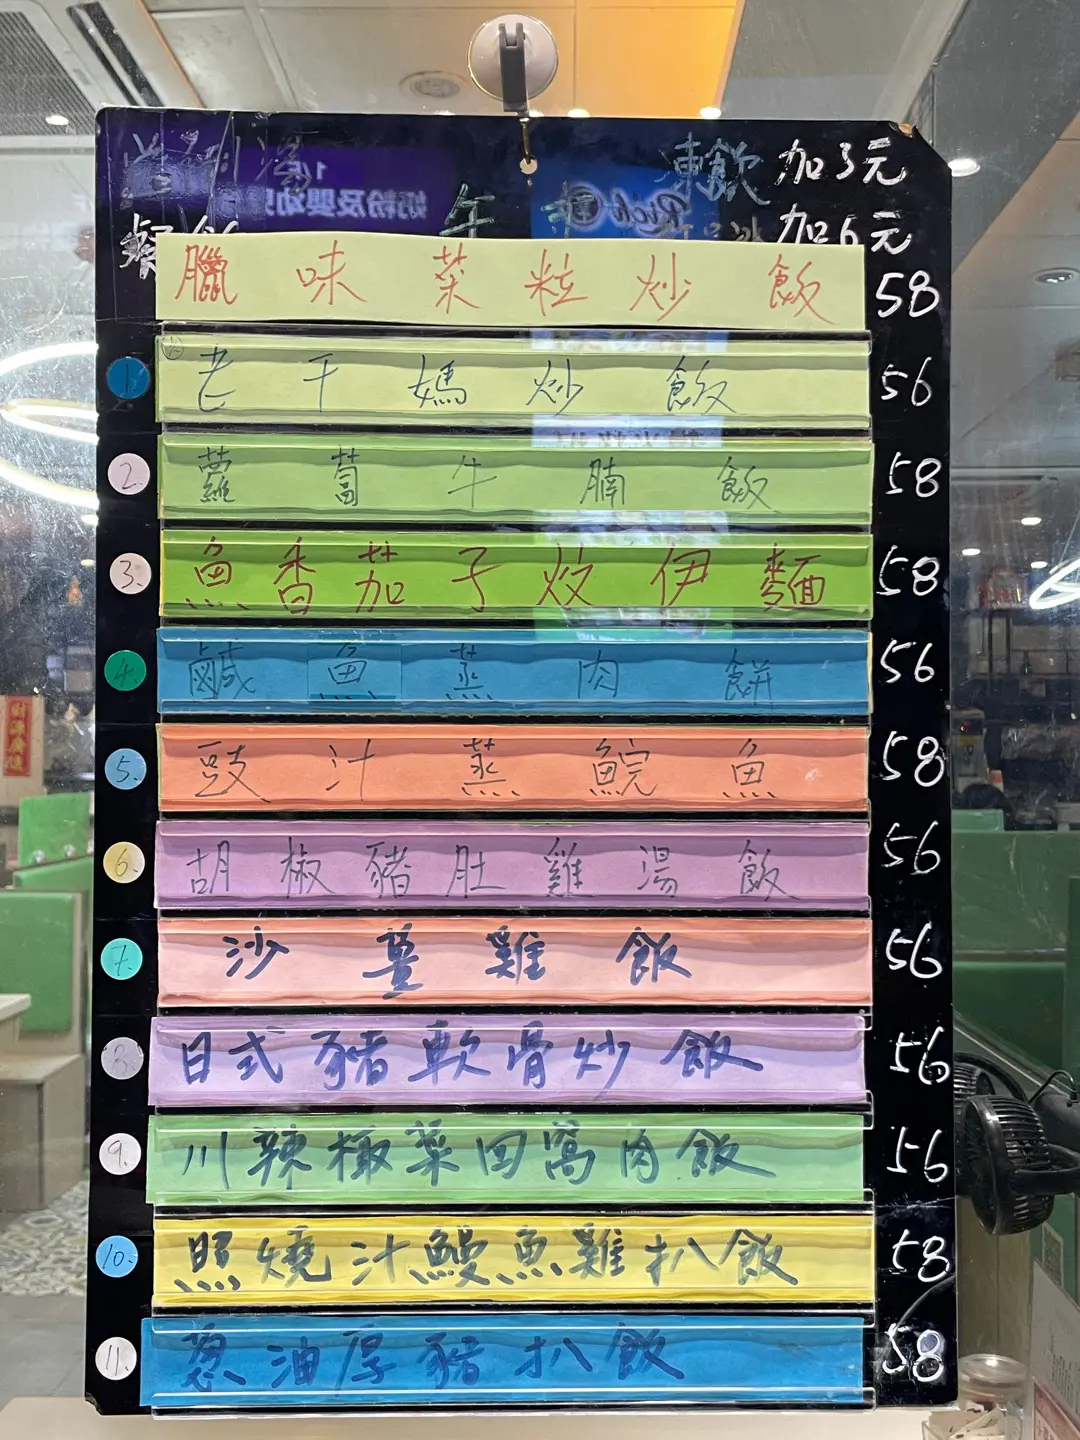 凍飲 加3元
加6元
臘味菜粒炒飯 58
1. 老干媽炒飯 56
2. 蘿蔔牛腩飯 58
3. 魚香茄子炆伊麵 58
4. 鹹魚蒸肉餅 56
5. 豉汁蒸鯇魚 58
6. 胡椒豬肚雞湯飯 56
7. 沙薑雞飯 56
日式豬軟骨炒飯 56
9. 川辣椒菜回窩肉飯 56
10. 照燒汁鰻魚雞扒飯 58
11. 葱油厚豬扒飯 58